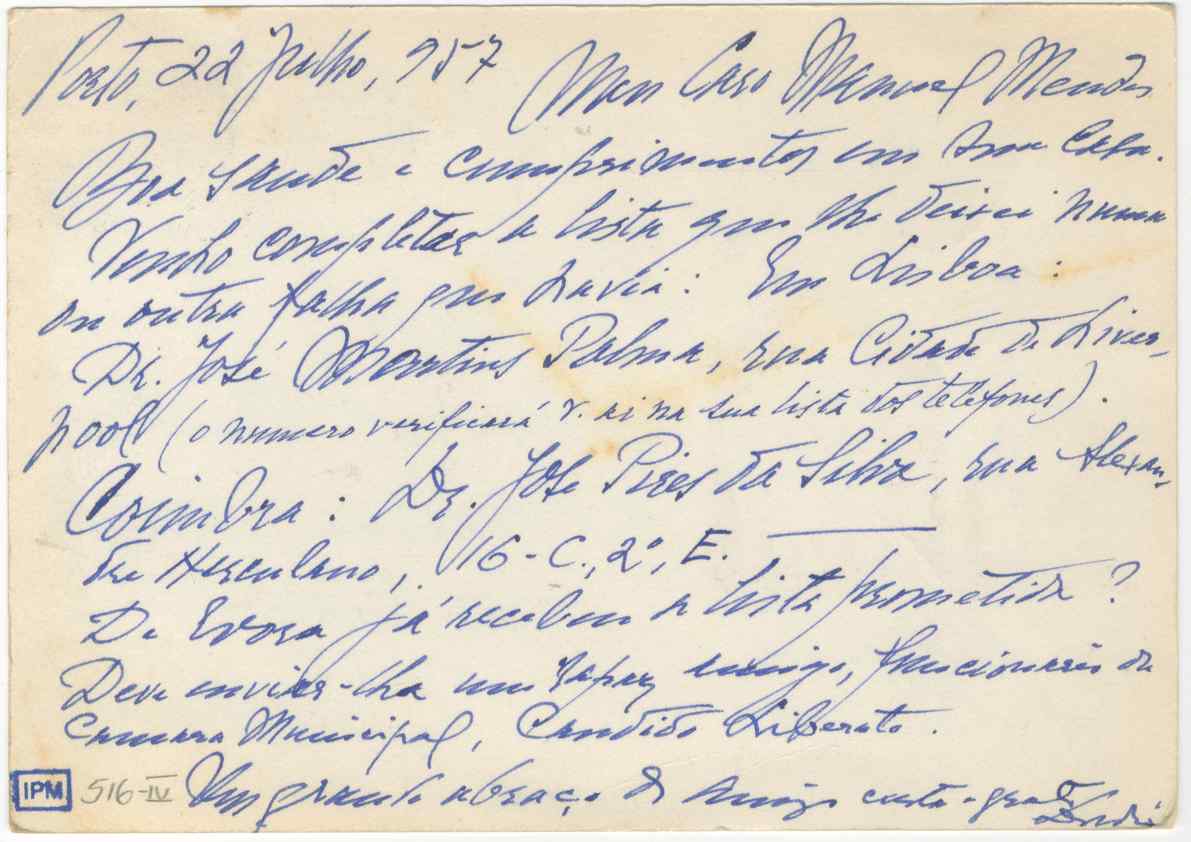 Porto, 22 Julho, 957
Meu Caro Manuel Mendes
Boa saude e cumprimentos em sua Casa.
Venho completar a lista que lhe deixei numa
ou outra falha que havia: Em Lisboa:
Dr. José Martins Palma, rua Cidade de Liver-
pool (o numero verificará V. ai na sua lista dos telefones).
Coimbra: Dr. José Pires da Silva, rua Alexan-
dre Herculano, 16-C., 2º, E.
De Evora já recebeu a lista prometida?
Deve enviar-lha um rapaz amigo, funcionario da
Camara Municipal, Candido Liberato.
IPM 516-IV Um grande abraço do amigo certo e grato